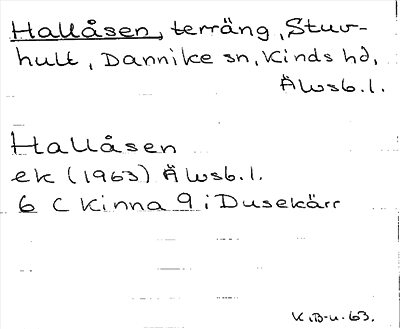 Hallåsen, terräng, Stuv-
hult, Dannike sn, Kinds hd,
Älvsb.l.
Hallåsen
ek (1963) Älvsb.l.
6 C Kinna 9 i Dusekärr
K.B-u. 63.